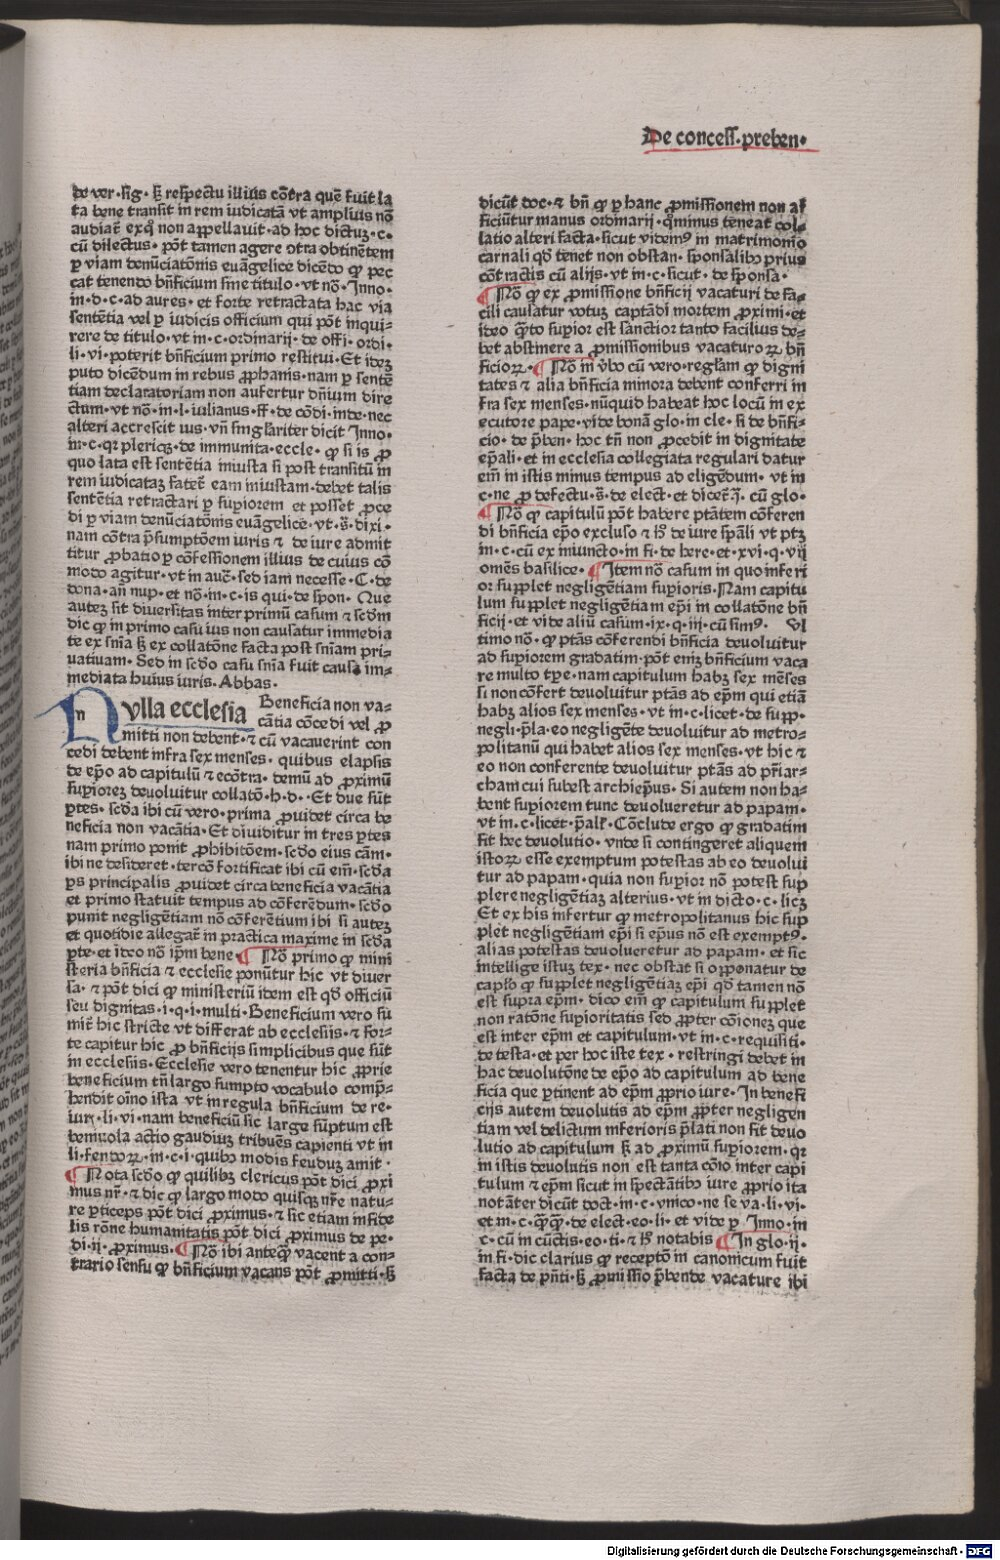 De concess.preben.
de ver.sig. sꝫ respectu illius cōtra quē fuit la
ta bene transit in rem iudicatā vt amplius nō
audiat̄ exq̄ non appellauit.ad hoc dictuꝫ.c.
cū dilectus. pōt tamen agere ↄtra obtinētem
ꝑ viam denūciatōnis euāgelice dicēdo ꝙ pec
cat tenendo bn̄ficium sine titulo.vt nō.Inno.
in.d.c.ad aures.et forte retractata hac via
sentētia vel ꝑ iudicis officium qui pōt inqui⸗
rere de titulo.vt in.c.ordinarij.de offi.ordi.
li.vi.poterit bn̄ficium primo restitui.Et ideꝫ
puto dicēdum in rebus ꝓphanis.nam ꝑ sentē
tiam declaratoriam non aufertur dn̄ium dire
ctum.vt nō.in.l.iulianus.ff.de cōdi.inde.nec
alteri accrescit ius.vn̄ singl̄ariter dicit Inno.
in.c.qꝛ pleriqꝫ.de immunita.eccle. ꝙ si is ꝓ
quo lata est sentētia iniusta si post transitū in
rem iudicataꝫ fatet̄ eam iniustam.debet talis
sentētia retractari ꝑ suꝑiorem et posset ꝓce
di ꝑ viam denūciatōnis euāgelice.vt.s̄.dixi.
nam cōtra p̄sumptōem iuris & de iure admit
titur ꝓbatio ꝑ cōfessionem illius de cuius cō
modo agitur.vt in auc̄.sed iam necesse.C.de
dona.an̄ nup.et nō.in.c.is qui.de spon. Que
auteꝫ sit diuersitas inter primū casum & scd̄m
dic ꝙ in primo casu ius non causatur immedia
te ex sn̄ia sꝫ ex collatōne facta post sn̄iam pri⸗
uatiuam. Sed in scd̄o casu sn̄ia fuit causa im⸗
mediata huius iuris. Abbas.
Nvlla ecclesia Beneficia non va⸗
cātia cōcedi vel ꝓ
mitti non debent.& cū vacauerint con
cedi debent infra sex menses. quibus elapsis
de ep̄o ad capitulū & ecōtra. demū ad ꝓximū
suꝑioreꝫ deuoluitur collatō.h.d..Et due sūt
ꝑtes. scd̄a ibi cū vero.prima ꝓuidet circa be
neficia non vacātia.Et diuiditur in tres ꝑtes
nam primo ponit ꝓhibitōem.scd̄o eius cām.
ibi ne desideret.tercō fortificat ibi cū em̄.scd̄a
ꝑs principalis ꝓuidet circa beneficia vacātia
et primo statuit tempus ad cōferēdum. scd̄o
punit negligētiam nō cōferētium ibi si auteꝫ
et quotidie allegat̄ in practica maxime in scd̄a
ꝑte.et ideo nō ip̄m bene.¶ Nō primo ꝙ mini
steria bn̄ficia & ecclesie ponūtur hic vt diuer
sa.& pōt dici ꝙ ministeriū idem est qd̄ officiū
seu dignitas.i.q.i.multi. Beneficium vero su
mit̄ hic stricte vt differat ab ecclesiis.& for⸗
te capitur hic ꝓ bn̄ficijs simplicibus que sūt
in ecclesiis. Ecclesie vero tenentur hic ꝓprie
beneficium tn̄ largo sumpto vocabulo comp̄⸗
hendit oīno ista vt in regula bn̄ficium de re⸗
iur.li.vi.nam beneficiū sic large sūptum est
beniuola actio gaudiuꝫ tribuēs capienti vt in
li.feudoꝝ.in.c.i.quibꝰ modis feuduꝫ amit.
¶ Nota scd̄o ꝙ quilibꝫ clericus pōt dici ꝓxi
mus nr̄.& dic ꝙ largo modo quisqꝫ nr̄e natu⸗
re ꝑticeps pōt dici ꝓximus.& sic etiam infide
lis rōne humanitatis pōt dici ꝓximus de pe.
di.ij.ꝓximus.¶ Nō ibi anteqꝫ vacent a con⸗
trario sensu ꝙ bn̄ficium vacans pōt ꝓmitti.sꝫ
dicūt doc.& bn̄ ꝙ ꝑ hanc ꝓmissionem non af
ficiūtur manus ordinarij.q̄minus teneat col⸗
latio alteri facta.sicut videmꝰ in matrimonio
carnali qd̄ tenet non obstan. sponsalibꝰ prius
cōtractis cū alijs.vt in.c.sicut.de sponsa.
¶ Nō ꝙ ex ꝓmissione bn̄ficij vacaturi de fa⸗
cili causatur votuꝫ captādi mortem ꝓximi.et
ideo q̄to suꝑior est sanctior tanto facilius de⸗
bet abstinere a ꝓmissionibus vacaturoꝝ bn̄
ficioꝝ.¶ Nō in v̄bo cū vero.regl̄am ꝙ digni
tates & alia bn̄ficia minora debent conferri in
fra sex menses.nūquid habeat hoc locū in ex
ecutore pape.vide bonā glo.in cle.si de bn̄fi⸗
cio.de p̄ben. hoc tn̄ non ꝓcedit in dignitate
ep̄ali.et in ecclesia collegiata regulari datur
em̄ in istis minus tempus ad eligēdum. vt in
c.ne ꝓ defectu.s̄.de elect.et dicet̄.j̄. cū glo.
¶ Nō ꝙ capitulū pōt habere ptātem cōferen
di bn̄ficia ep̄o excluso & hꝰ de iure sp̄ali vt ptꝫ
in.c.cū ex iniuncto.in fi.de here.et.xvi.q.vij
omēs basilice.¶ Item nō casum in quo inferi
or supplet negligētiam suꝑioris. Nam capitu
lum supplet negligētiam ep̄i in collatōne bn̄
ficij.et vide aliū casum.ix.q.iij.cū simꝰ. Vl
timo nō.ꝙ ptās cōferendi bn̄ficia deuoluitur
ad suꝑiorem gradatim.pōt enīꝫ bn̄ficium vaca
re multo tꝑe.nam capitulum habꝫ sex mēses
si non cōfert deuoluitur ptās ad ep̄m qui etiā
habꝫ alios sex menses.vt in.c.licet.de supp.
negli.p̄la.eo negligēte deuoluitur ad metro⸗
politanū qui habet alios sex menses.vt hic &
eo non conferente deuoluitur ptās ad p̄riar⸗
cham cui subest archiep̄us. Si autem non ha⸗
bent suꝑiorem tunc deuolueretur ad papam.
vt in.c.licet.p̄alꝭ. Cōclude ergo ꝙ gradatim
fit hec deuolutio. vnde si contingeret aliquem
istoꝝ esse exemptum potestas ab eo deuolui
tur ad papam.quia non suꝑior nō potest sup
plere negligētiaꝫ alterius.vt in dicto.c.licꝫ
Et ex his infertur ꝙ metropolitanus hic sup
plet negligētiam ep̄i si ep̄us nō est exemptꝰ.
alias potestas deuolueretur ad papam. et sic
intellige istuꝫ tex. nec obstat si opponatur de
capl̄o ꝙ supplet negligētiaꝫ ep̄i qd̄ tamen nō
est supra ep̄m. dico em̄ ꝙ capitulum supplet
non ratōne suꝑioritatis sed ꝓpter cōioneꝫ que
est inter ep̄m et capitulum.vt in.c.requisiti.
de testa.et per hoc iste tex. restringi debet in
hac deuolutōne de ep̄o ad capitulum ad bene
ficia que ꝑtinent ad ep̄m ꝓprio iure. In benefi
cijs autem deuolutis ad ep̄m ꝓpter negligen
tiam vel delictum inferioris p̄lati non fit deuo
lutio ad capitulum sꝫ ad ꝓximū suꝑiorem.qꝛ
in istis deuolutis non est tanta cōio inter capi
tulum & ep̄m sicut in spectātibꝰ iure ꝓprio ita
notāter dicūt doct.in.c.vnico.ne se va.li.vi.
et in.c.q̄q̄.de elect.eo.li.et vide ꝑ Inno.in
c.cū in cūctis.eo.ti.& hꝰ notabis ¶ In glo.ij.
in fi.dic clarius ꝙ receptō in canonicum fuit
facta de p̄nti.sꝫ ꝓmissio p̄bende vacature ibi
Digitalisierung gefördert durch die Deutsche Forschungsgemeinschaft - DFG